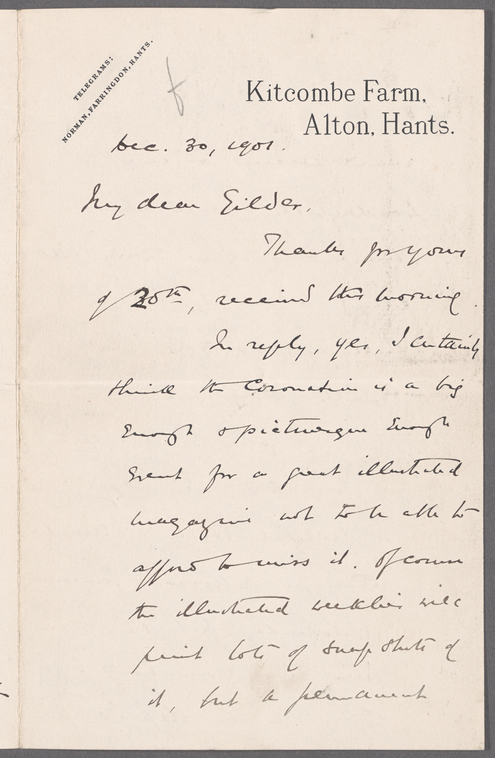 TELEGRAMS:
NORMAN, FARRINGDON, HANTS.
Kitcombe Farm,
Alton, Hants.
Dec. 30, 1901.
My dear Gilder,
Thanks for yours
of 20th, received this morning.
In reply, yes, I certainly
think the Coronation is a big
enough & picturesque enough
event for a great illustrated
magazine not to be able to
afford to miss it. Of course
the illustrated weeklies will
print lots of snap shots of
it, but a permanent